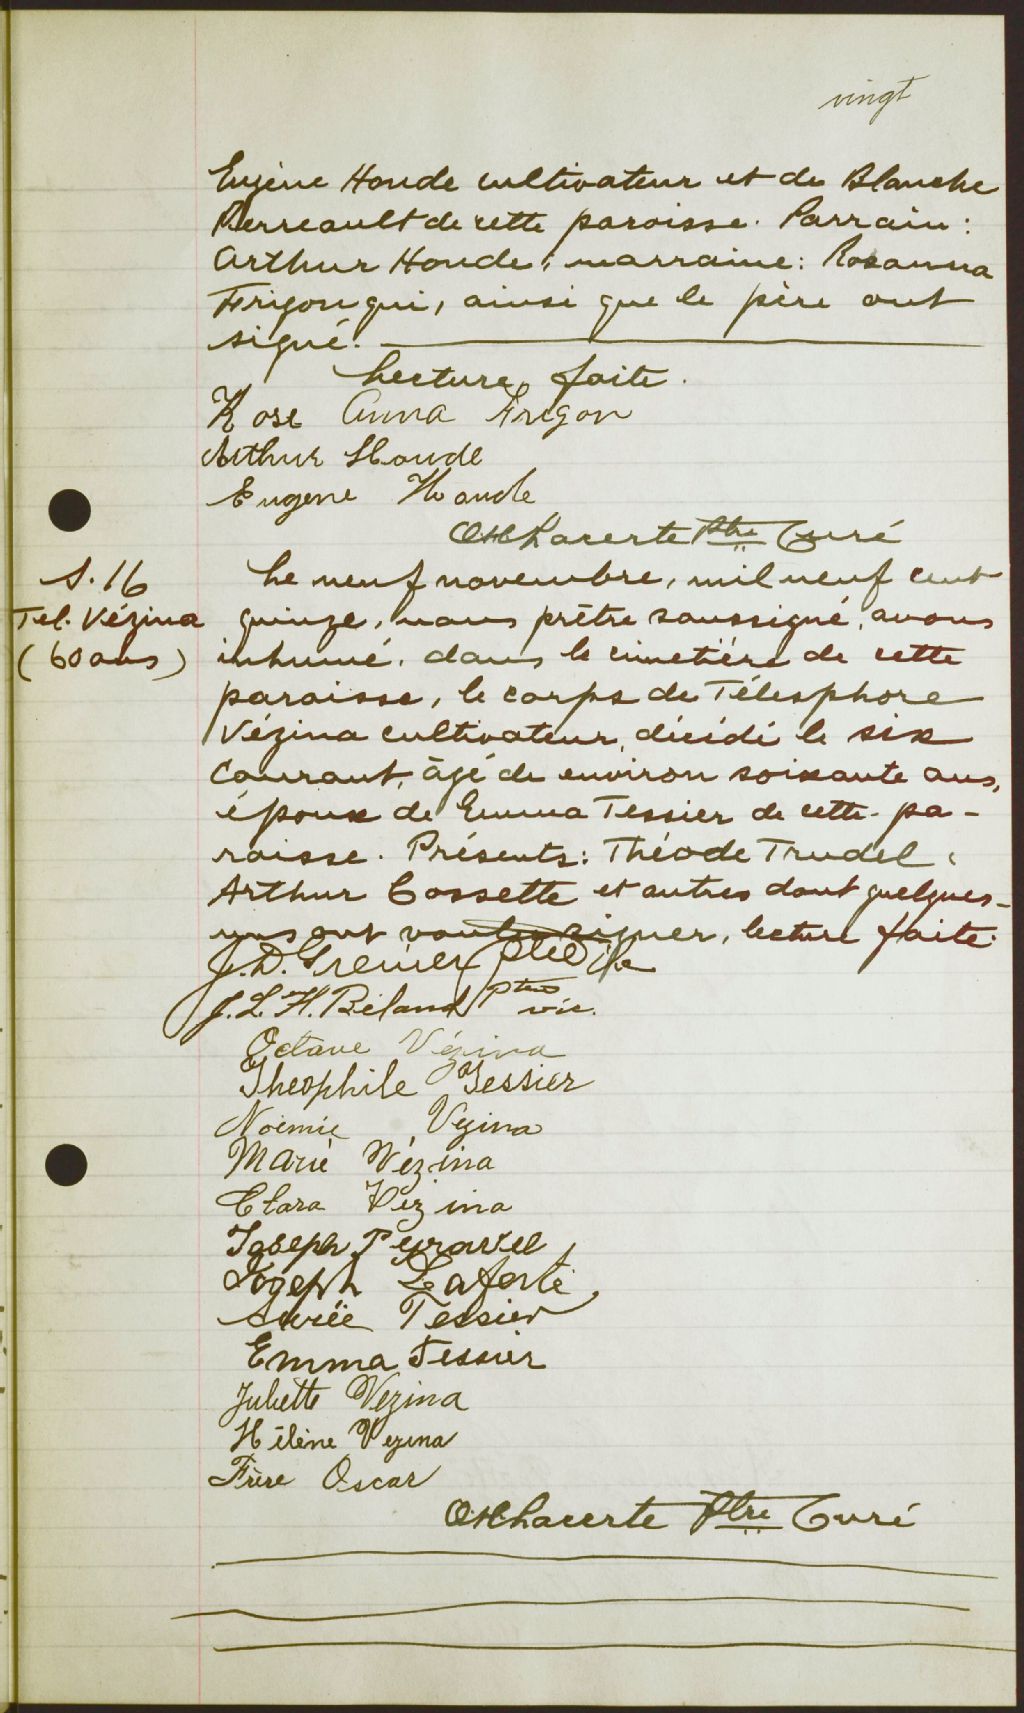 vingt
Eugène Houde cultivateur et de Blanche
Perreault de cette paroisse. Parrain:
Arthur Houde; marraine: Rosanna
Frigon qui, ainsi que le père ont
signé.
Lecture faite.
Rose Anna Frigon
Arthur Houde
Eugene Houde
Lacerte Ptre Curé
S. 16
Tél. Vézina
(60 ans)
Le neuf novembre, mil neuf cent
quinze, nous prêtre soussigné, avons
inhumé, dans le cimetière de cette
paroisse, le corps de Télesphore
Vézina cultivateur, décédé le six
courant, âgé de environ soixante ans,
époux de Emma Tessier de cette pa-
roisse. Présents: Théode Trudel,
Arthur Cossette et autres dont quelques-
uns ont voulu signer, lecture faite.
J. D. Grenier
J. L. H. Béland Ptre vic.
Octave Vézina
Theophile Tessier
Noémie Vezina
Marie Vézina
Clara Vézina
Joseph
Joseph Laferté
Tessier
Emma Tessier
Juliette Vezina
Hélène Vezina
Frère Oscar
Lacerte Ptre Curé